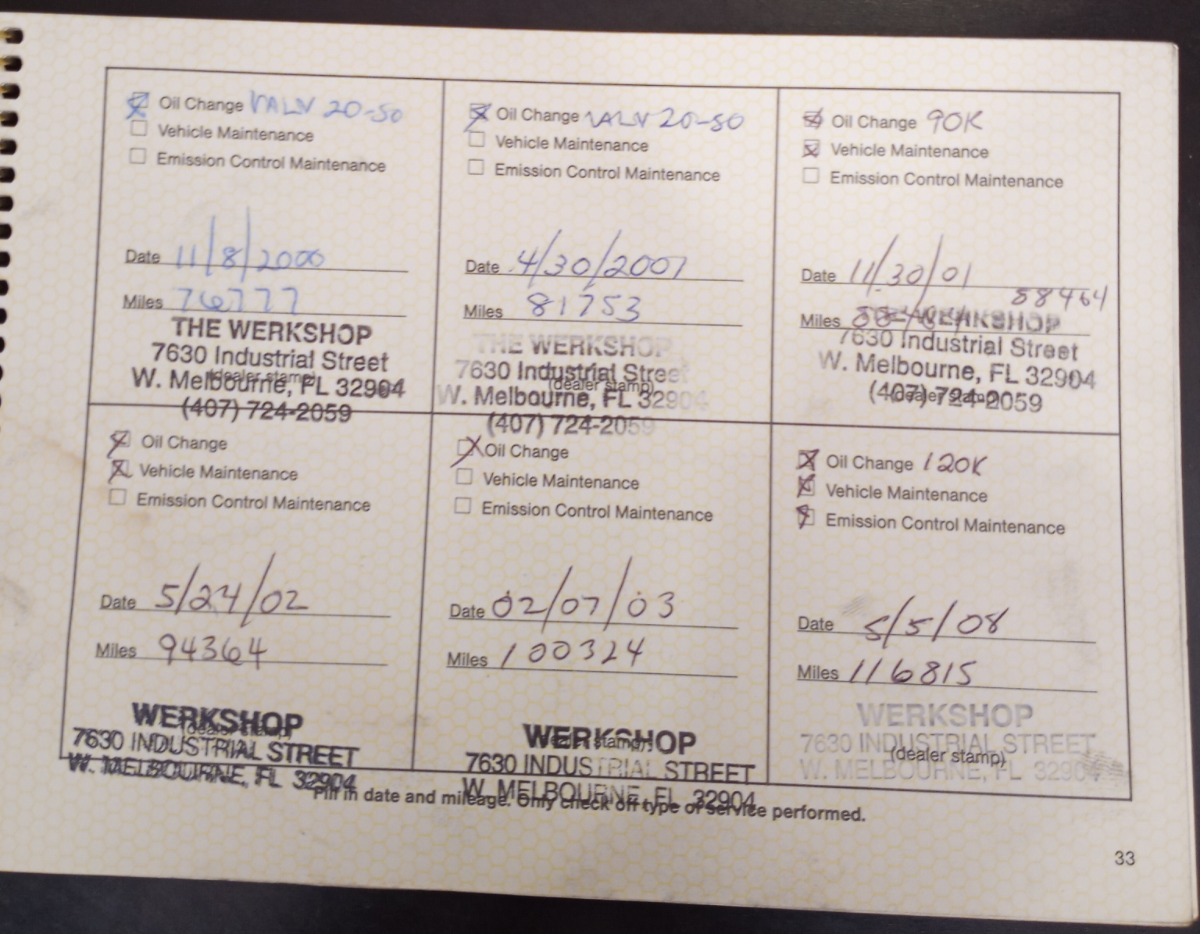 Oil Change VALV 20-50
Vehicle Maintenance
Emission Control Maintenance
Date 11/8/2000
Miles 76777
(dealer stamp)
THE WERKSHOP
7630 Industrial Street
W. Melbourne, FL 32904
(407) 724-2059
Oil Change VALV 20-50
Vehicle Maintenance
Emission Control Maintenance
Date 4/30/2001
Miles 81753
(dealer stamp)
THE WERKSHOP
7630 Industrial Street
W. Melbourne, FL 32904
(407) 724-2059
Oil Change 90K
Vehicle Maintenance
Emission Control Maintenance
Date 11/30/01
88464
Miles
(dealer stamp)
THE WERKSHOP
7630 Industrial Street
W. Melbourne, FL 32904
(407) 724-2059
Oil Change
Vehicle Maintenance
Emission Control Maintenance
Date 5/24/02
Miles 94364
(dealer stamp)
WERKSHOP
7630 INDUSTRIAL STREET
W. MELBOURNE, FL 32904
Oil Change
Vehicle Maintenance
Emission Control Maintenance
Date 02/07/03
Miles 100324
(dealer stamp)
WERKSHOP
7630 INDUSTRIAL STREET
W. MELBOURNE, FL 32904
Oil Change 120K
Vehicle Maintenance
Emission Control Maintenance
Date 5/5/08
Miles 116815
(dealer stamp)
WERKSHOP
7630 INDUSTRIAL STREET
W. MELBOURNE, FL 32904
Fill in date and mileage. Only check off type of service performed.
33